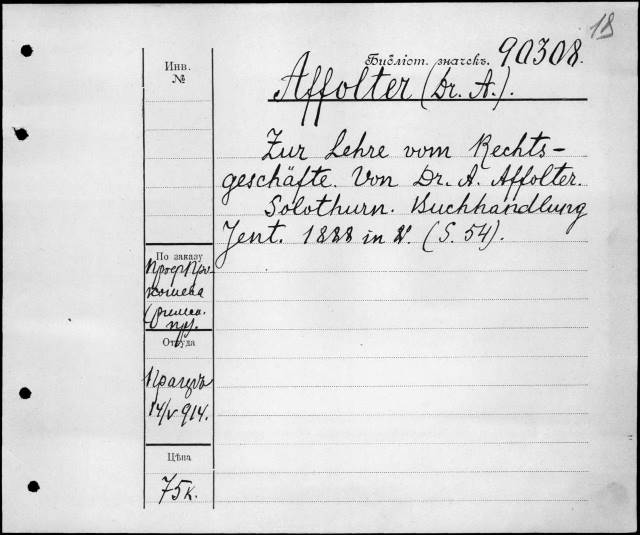 18
Библіот. значекъ. 90308.
Affolter (Dr. A.).
Zur Lehre vom Rechts-
geschäfte. Von Dr. A. Affolter.
Solothurn. Buchhandlung
Jent. 1888 in 8. (S. 54).
Инв.
№
По заказу
Проф. Про-
кошева
Откуда
14/V 914.
Цѣна
75к.